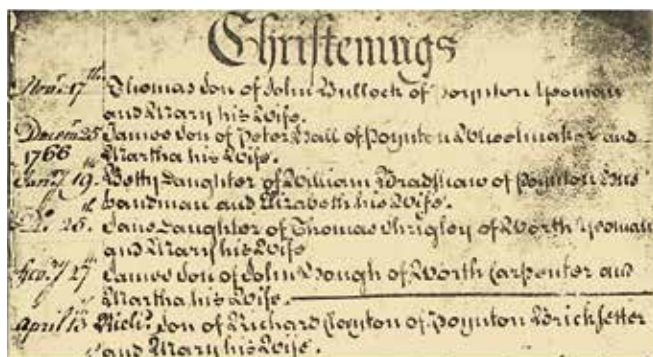 Christenings
Novr. 17th Thomas Son of John Bullock of Poynton Yeoman
and Mary his Wife.
Decem 25 James Son of Peter Hall of Poynton Wheelmaker and
1766 Martha his Wife.
Jany. 19th. Betty Daughter of William Bradshaw of Poynton Hus
bandman and Elizabeth his Wife.
Do. 25th. Jane Daughter of Thomas Shrigley of Worth Yeoman
and Mary his Wife
Feby. 27th James Son of John Hough of Worth Carpenter and
Martha his Wife.
April 13th Richd. Son of Richard Clayton of Poynton Bricksetter
and Mary his Wife.